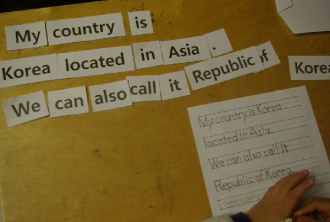 My country is
Korea located in Asia .
We can also call it Republic of
Korea
My country is Korea
located in Asia.
We can also call it
Republic of Korea.